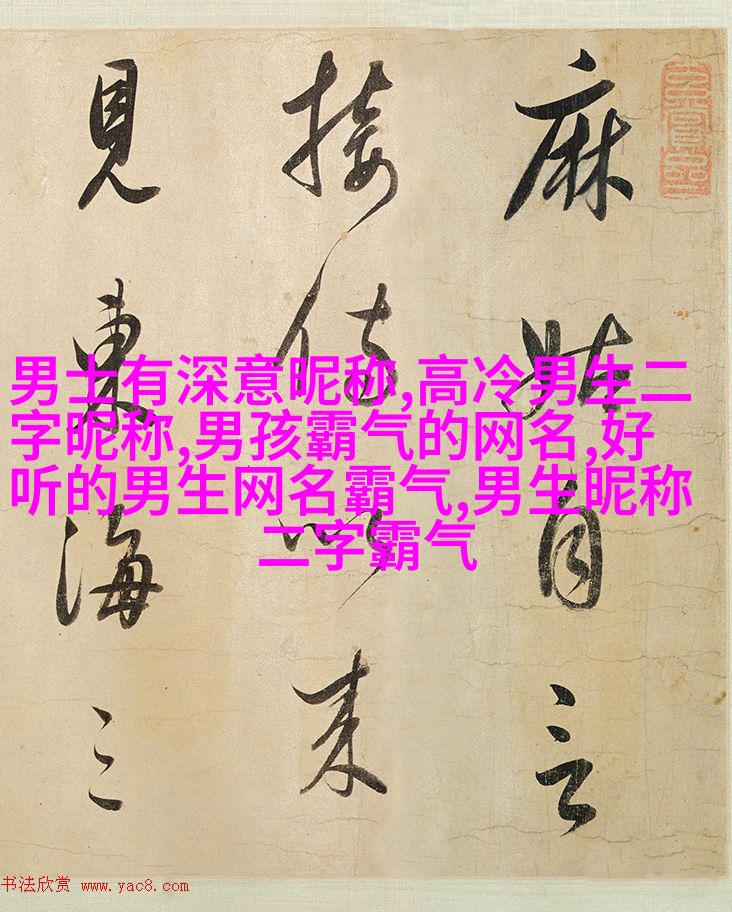 麻姑自言
接侍以来
見東海三
男士有深意昵称,高冷男生二
字昵称,男孩霸气的网名,好
听的男生网名霸气,男生昵称
二字霸气
书法欣赏 www.yac8.com